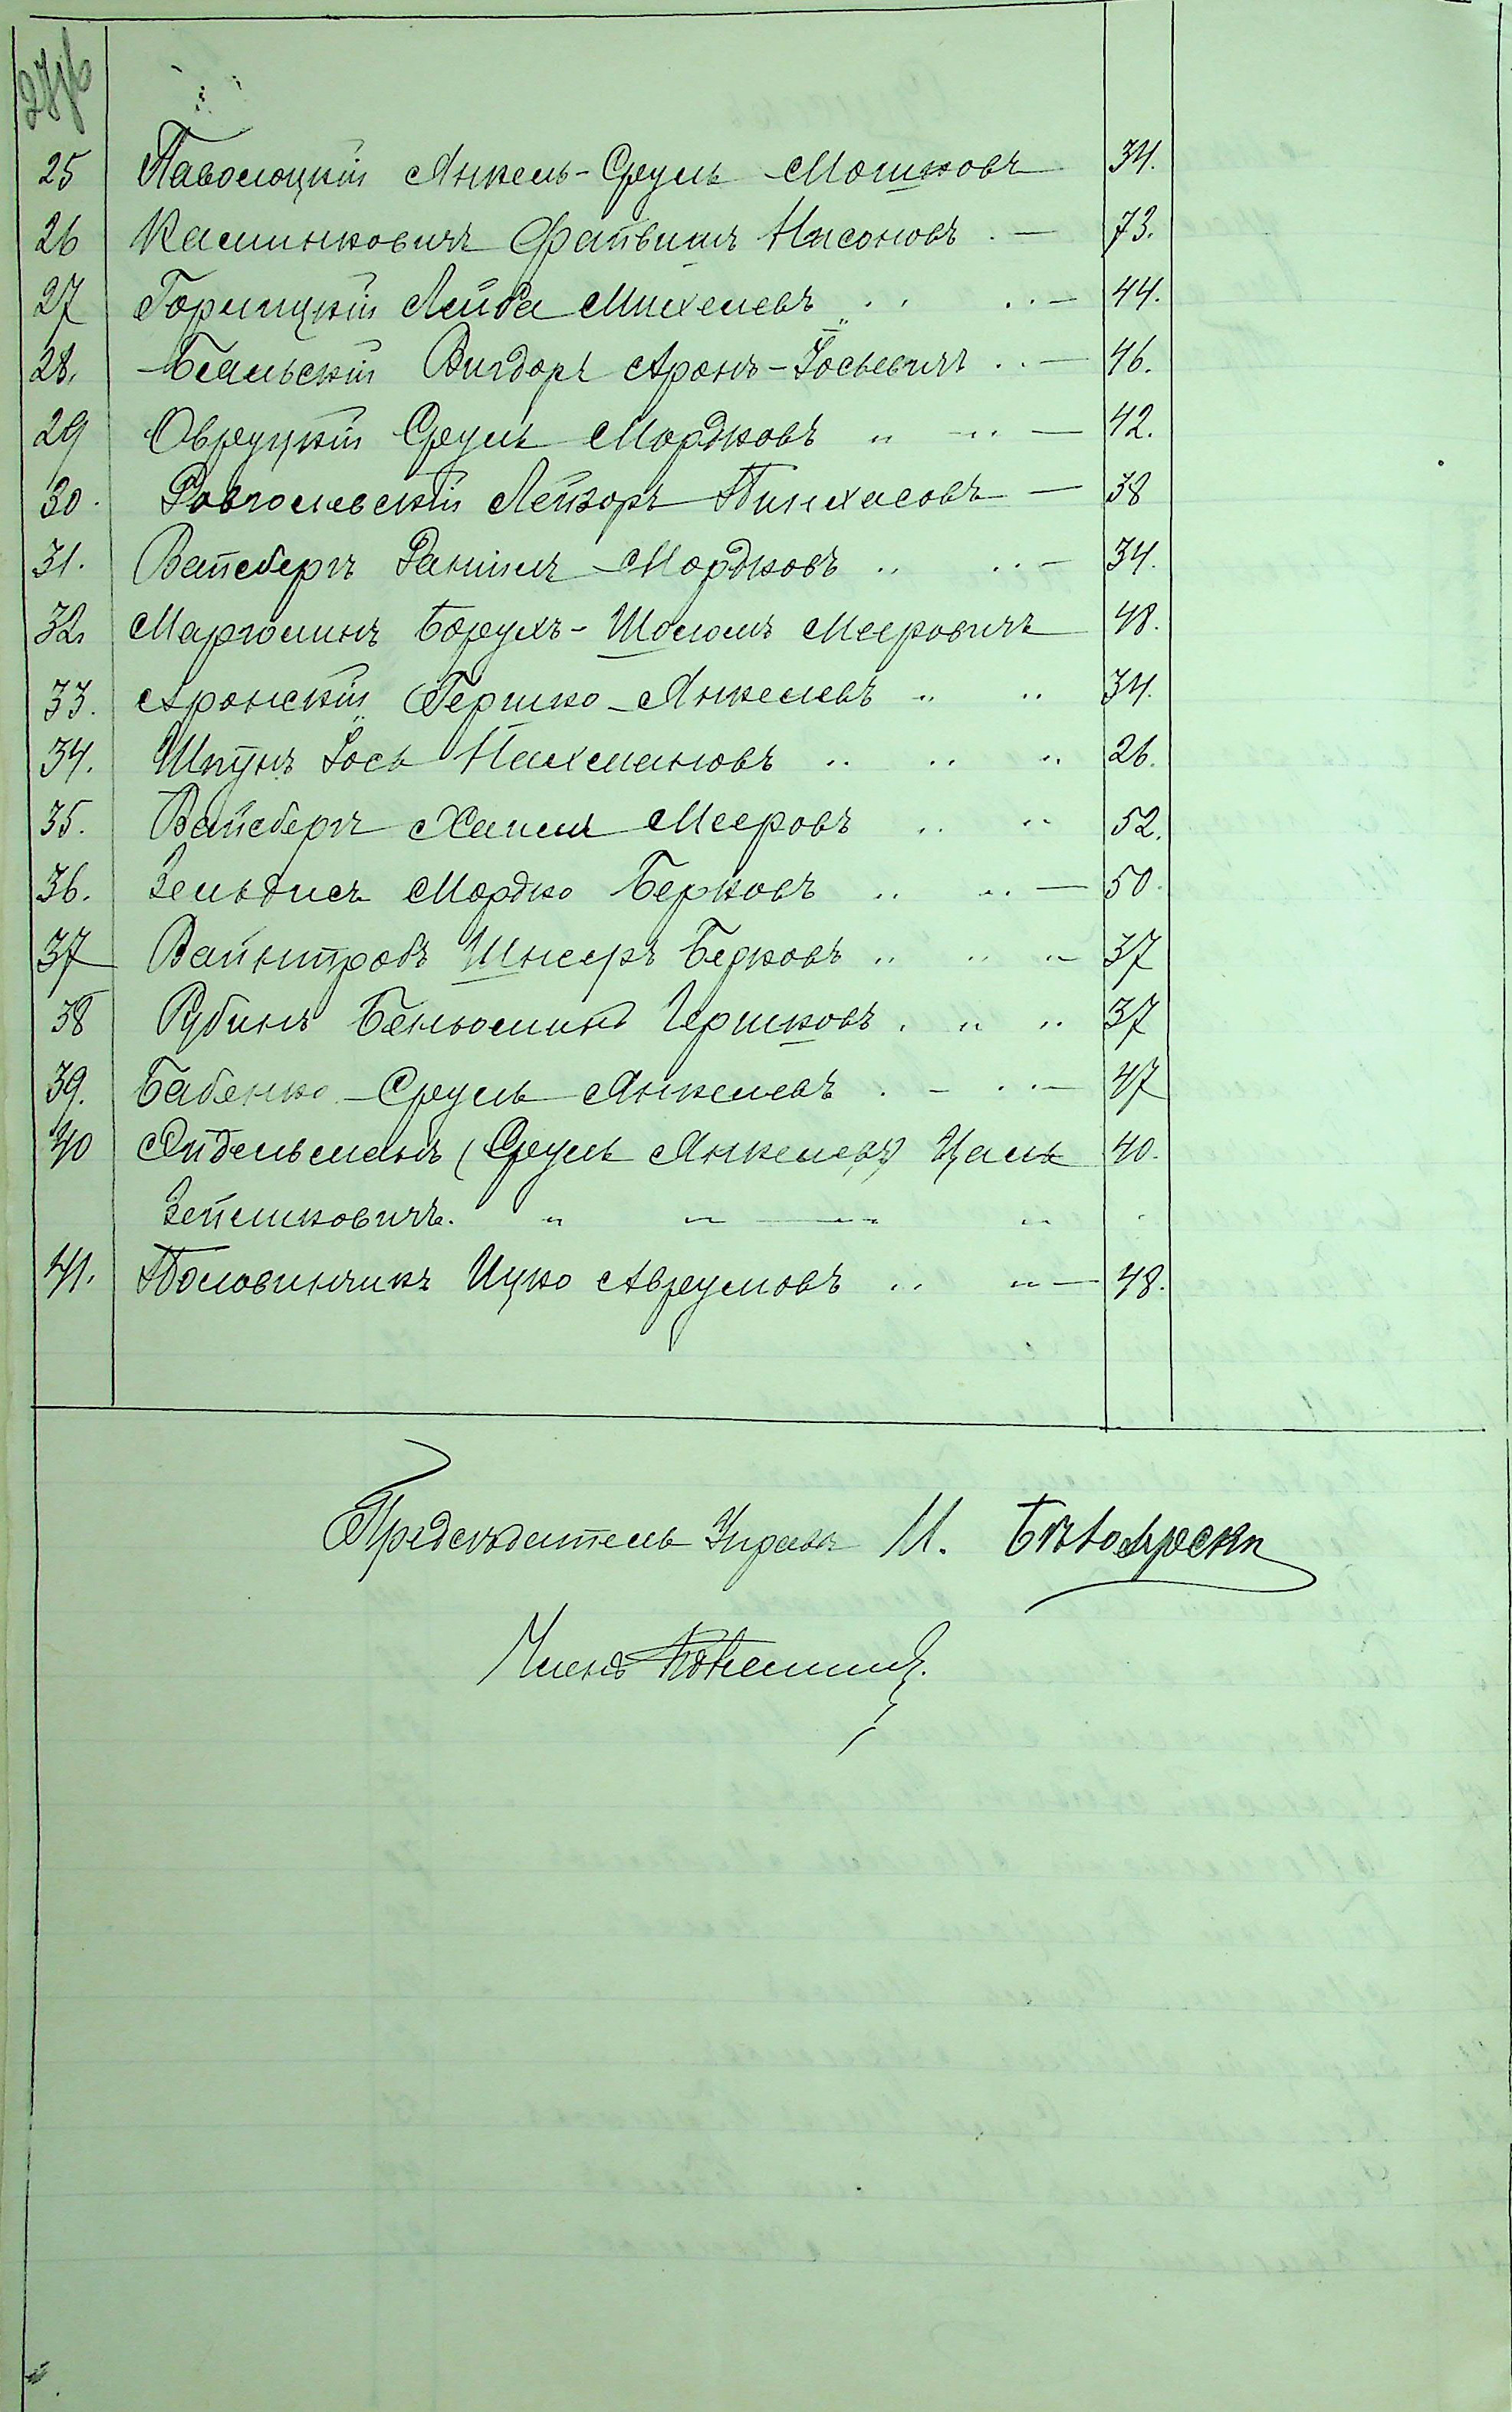 25 Паволоцкій Янкель-Сруль Мошковъ 34.
26 Каминковичъ Файвишъ Нисоновъ . — 73.
27 Горицкій Лейба Михелевъ . . . . — 44.
28. Бѣльскій Вигдоръ Аронъ-Іосьевичъ . . — 46.
29 Овруцкій Сруль Мордковъ " — " — 42.
30. Лейзоръ Пинхасовъ — 38
31. Вайсбергъ Данiилъ Мордковъ " . . — 34.
32. Марголинъ Борухъ-Шоломъ Мееровичъ 48.
33. Аронскій Гершко Янкелевъ " " 34.
34. Шпунъ Іось Нахмановъ " " " 26.
35. Вайсбергъ Хаимъ Мееровъ " " 52.
36. Зельдисъ Мордко Берковъ " " — 50.
37 Вайнтробъ Шнееръ Берковъ " " " 37
38 Рубинъ Беньюминъ Гершковъ . " " 37
39. Бабенко Сруль Янкелевъ . — . . — 47
40 Айдельманъ (Сруль Янкелевъ) Цаль 40.
Зейликовичъ. " " — " "
41. Половинчикъ Ицко Авреумовъ " " — 48.
Предсѣдатель Управы М.
Членъ